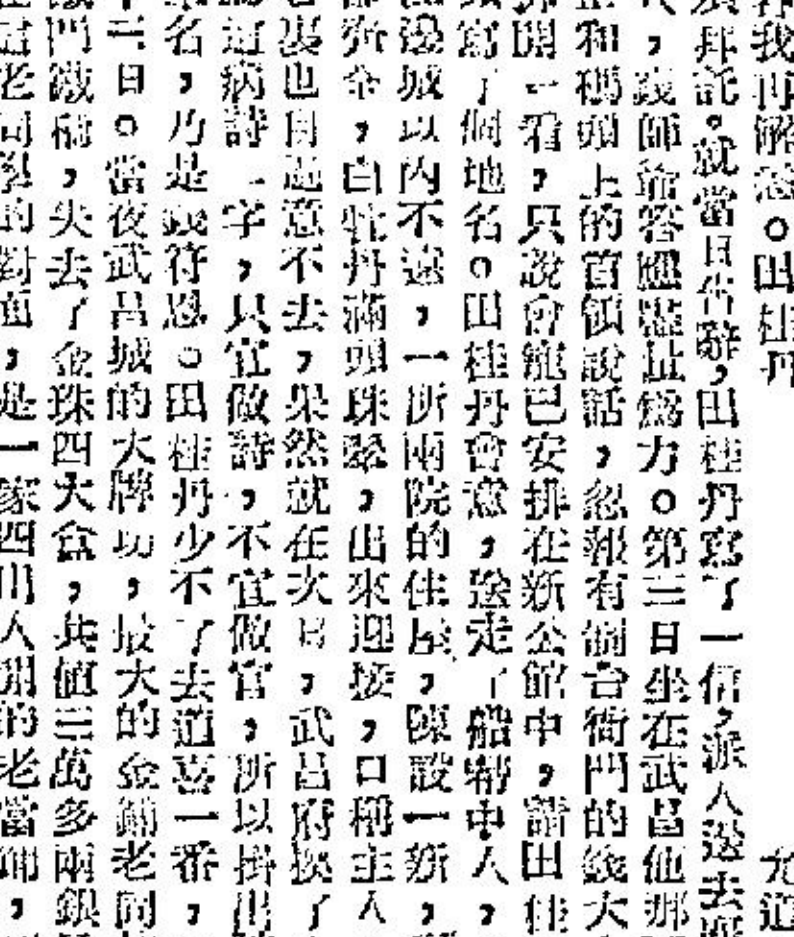 我再解
。田桂丹
拜託。就當日告辭,田桂丹寫了一信,派人送去
,錢師爺答應盡量為力。第三日坐在武昌他那
和碼頭上的首領說話,忽報有個台衙門的錢大
開一看,只說會館已安排在新公館中,請田佳
寫了個地名。田桂丹會意,送走了船幫中人,
邊城以內不遠,一所兩院的住屋,陳設一新,
齊全,白牡丹滿頭珠翠,出來迎接,口稱主人
裏也自過意不去,果然就在次日,武昌府換了
病詩二字,只宜做詩,不宜做官,所以掛出
名,乃是錢符恩。田桂丹少不了去道喜一番,
十二日。當夜武昌城的大牌坊,最大的金鋪老同
門被,失去了金珠四大盒,共值三萬多兩銀
老同的對面,是一家四川人開的老當鋪,